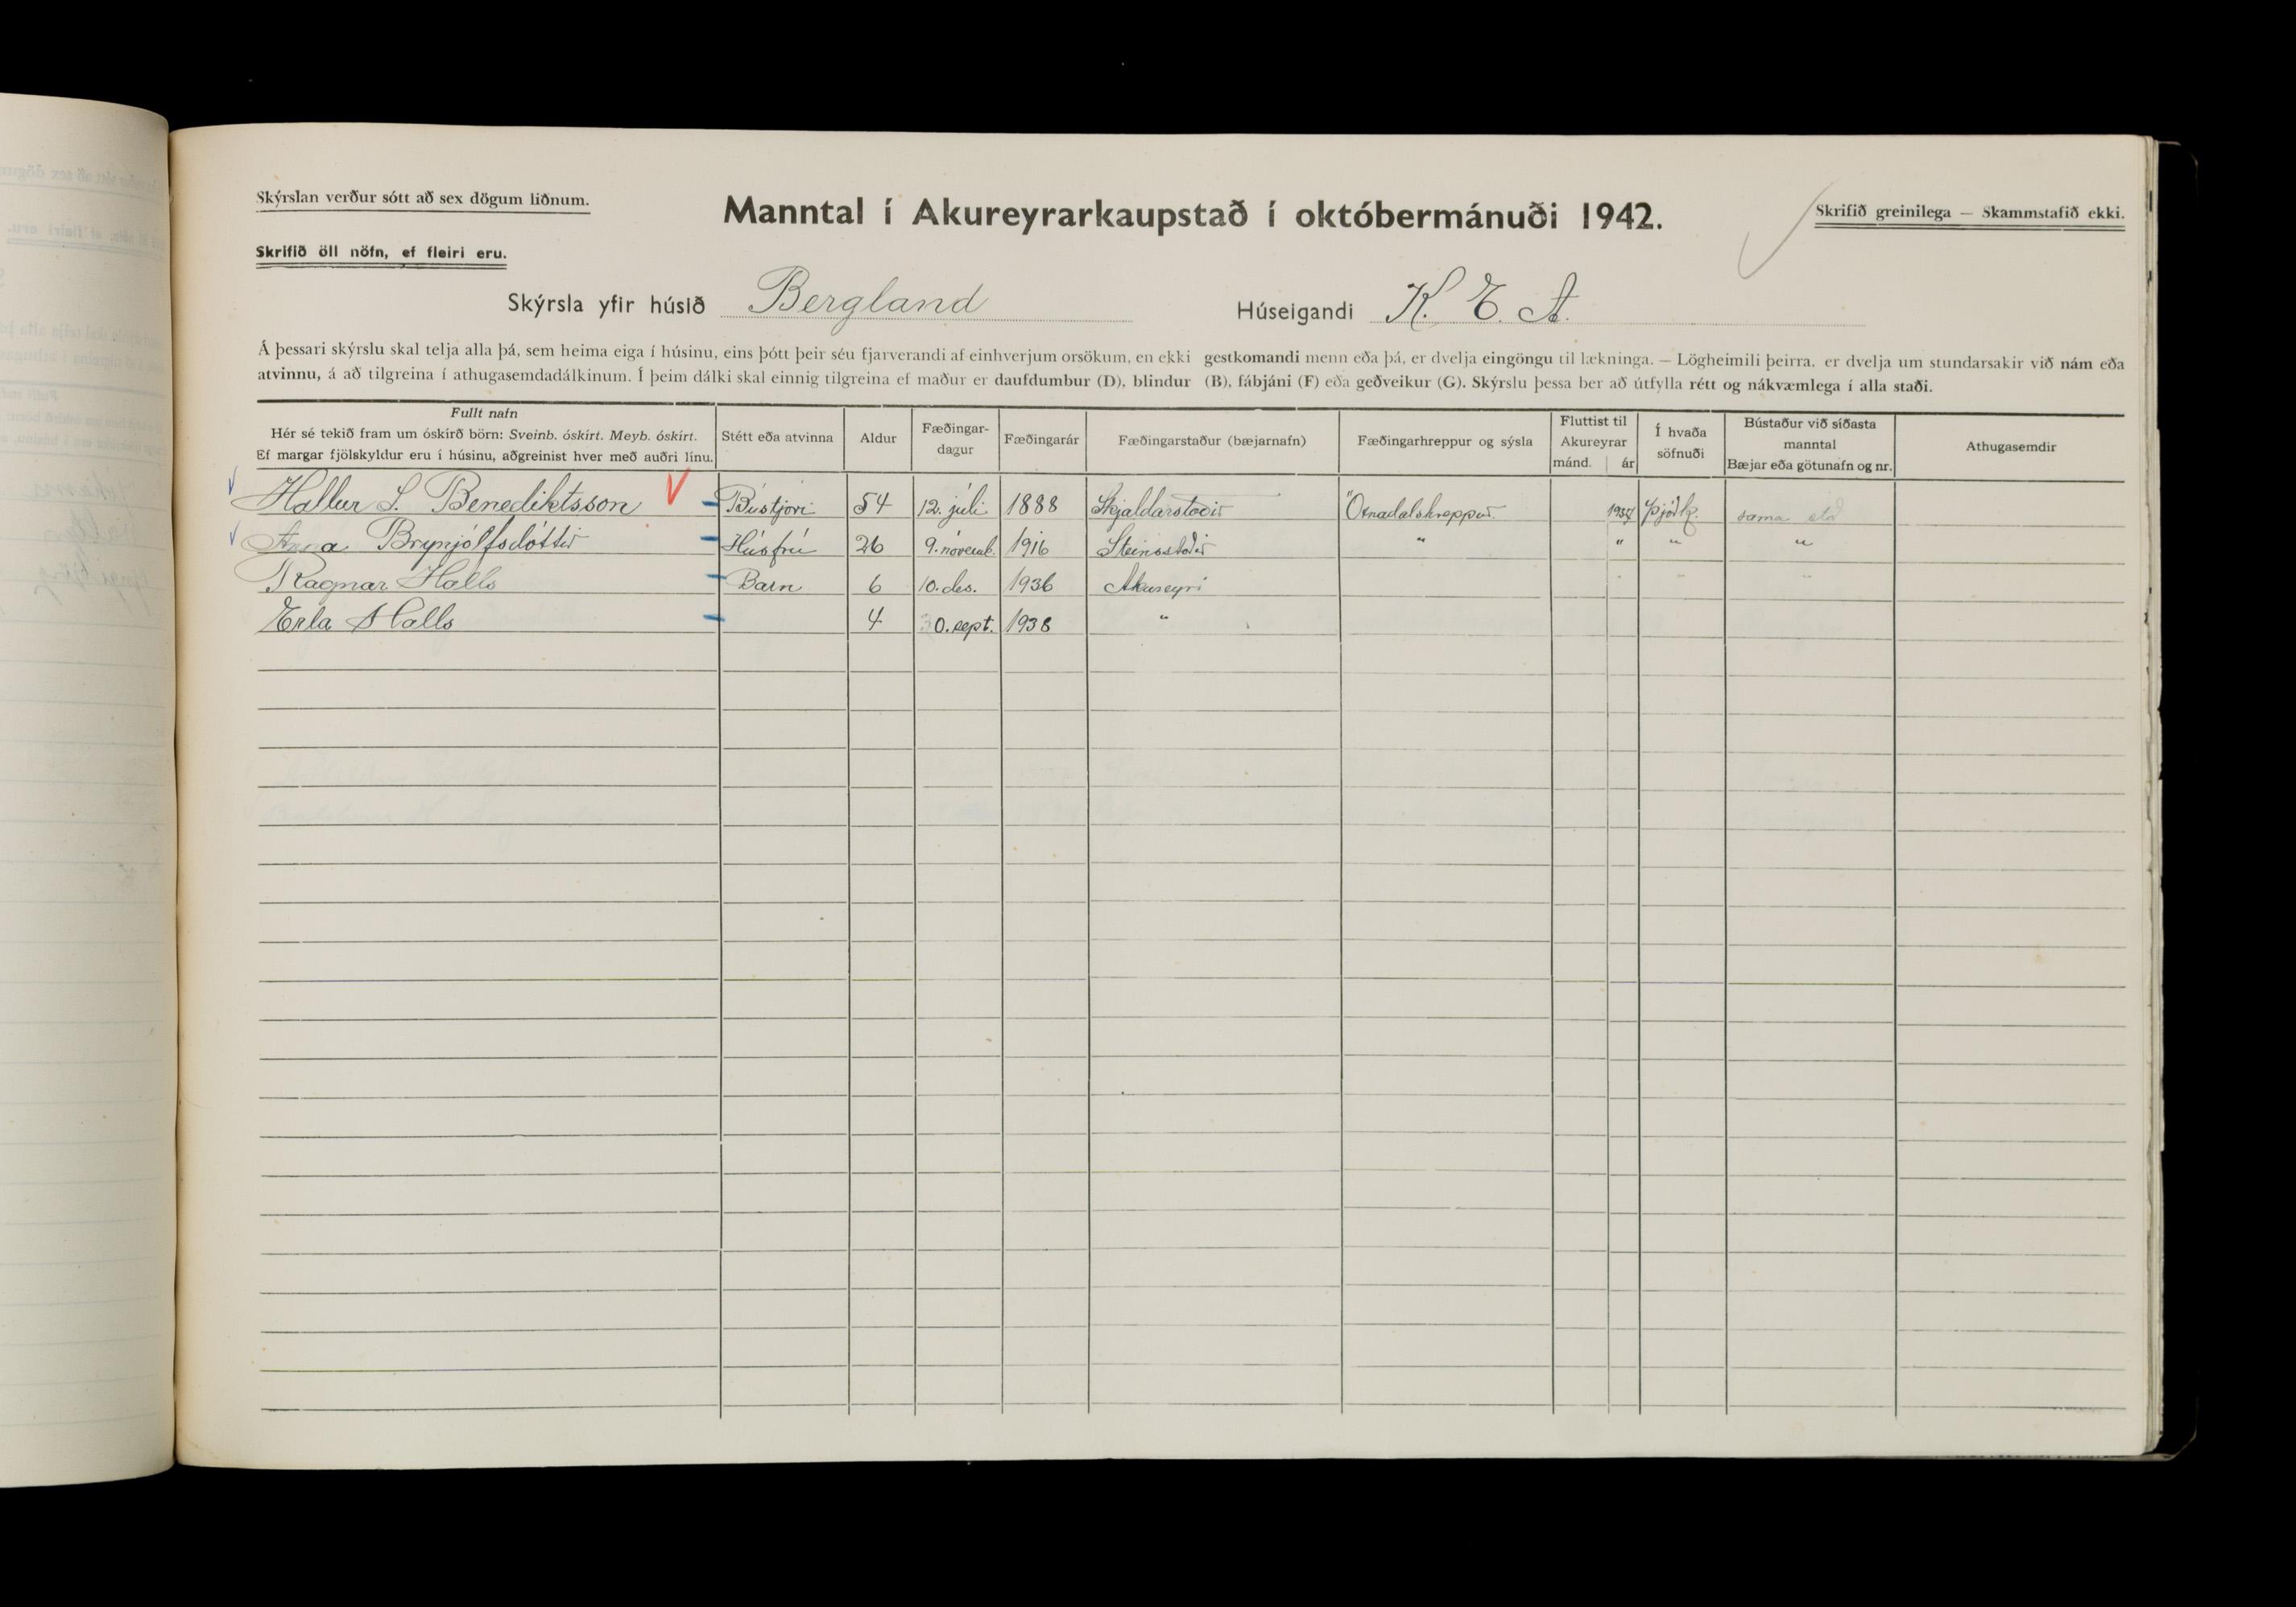 Skýrslan verður sótt að sex dögum liðnum.
Manntal í Akureyrarkaupstað í októbermánuði 1942.
Skrifið greinilega — Skammstafið ekki.
Skrifið öll nöfn, ef fleiri eru.
Skýrsla yfir húsið Bergland Húseigandi K. E. A.
Á þessari skýrslu skal telja alla þá, sem heima eiga í húsinu, eins þótt þeir séu fjarverandi af einhverjum orsökum, en ekki gestkomandi menn eða þá, er dvelja eingöngu til lækninga. — Lögheimili þeirra, er dvelja um stundarsakir við nám eða
atvinnu, á að tilgreina í athugasemdadálkinum. Í þeim dálki skal einnig tilgreina ef maður er daufdumbur (D), blindur (B), fábjáni (F) eða geðveikur (G). Skýrslu þessa ber að útfylla rétt og nákvæmlega í alla staði.
Fullt nafn
Hér sé tekið fram um óskírð börn: Sveinb. óskírt. Meyb. óskírt.
Ef margar fjölskyldur eru í húsinu, aðgreinist hver með auðri línu.
Stétt eða atvinna
Aldur
Fæðingar-
dagur
Fæðingarár
Fæðingarstaður (bæjarnafn)
Fæðingarhreppur og sýsla
Fluttist til
Akureyrar
mánd. ár
Í hvaða
söfnuði
Bústaður við síðasta
manntal
Bæjar eða götunafn og nr.
Athugasemdir
Hallur S. Benediktsson Bústjóri 54 12. júlí 1888 Skjaldarstaðir Öxnadalshreppur. Þjóðk. sama stað
Anna Brynjólfsdóttir Húsfrú 26 9. novemb. 1916 Steinsstaðir " " " "
Ragnar Halls Barn 6 10. des. 1936 Akureyri " " "
Erla Halls 4 30. sept. 1938 "